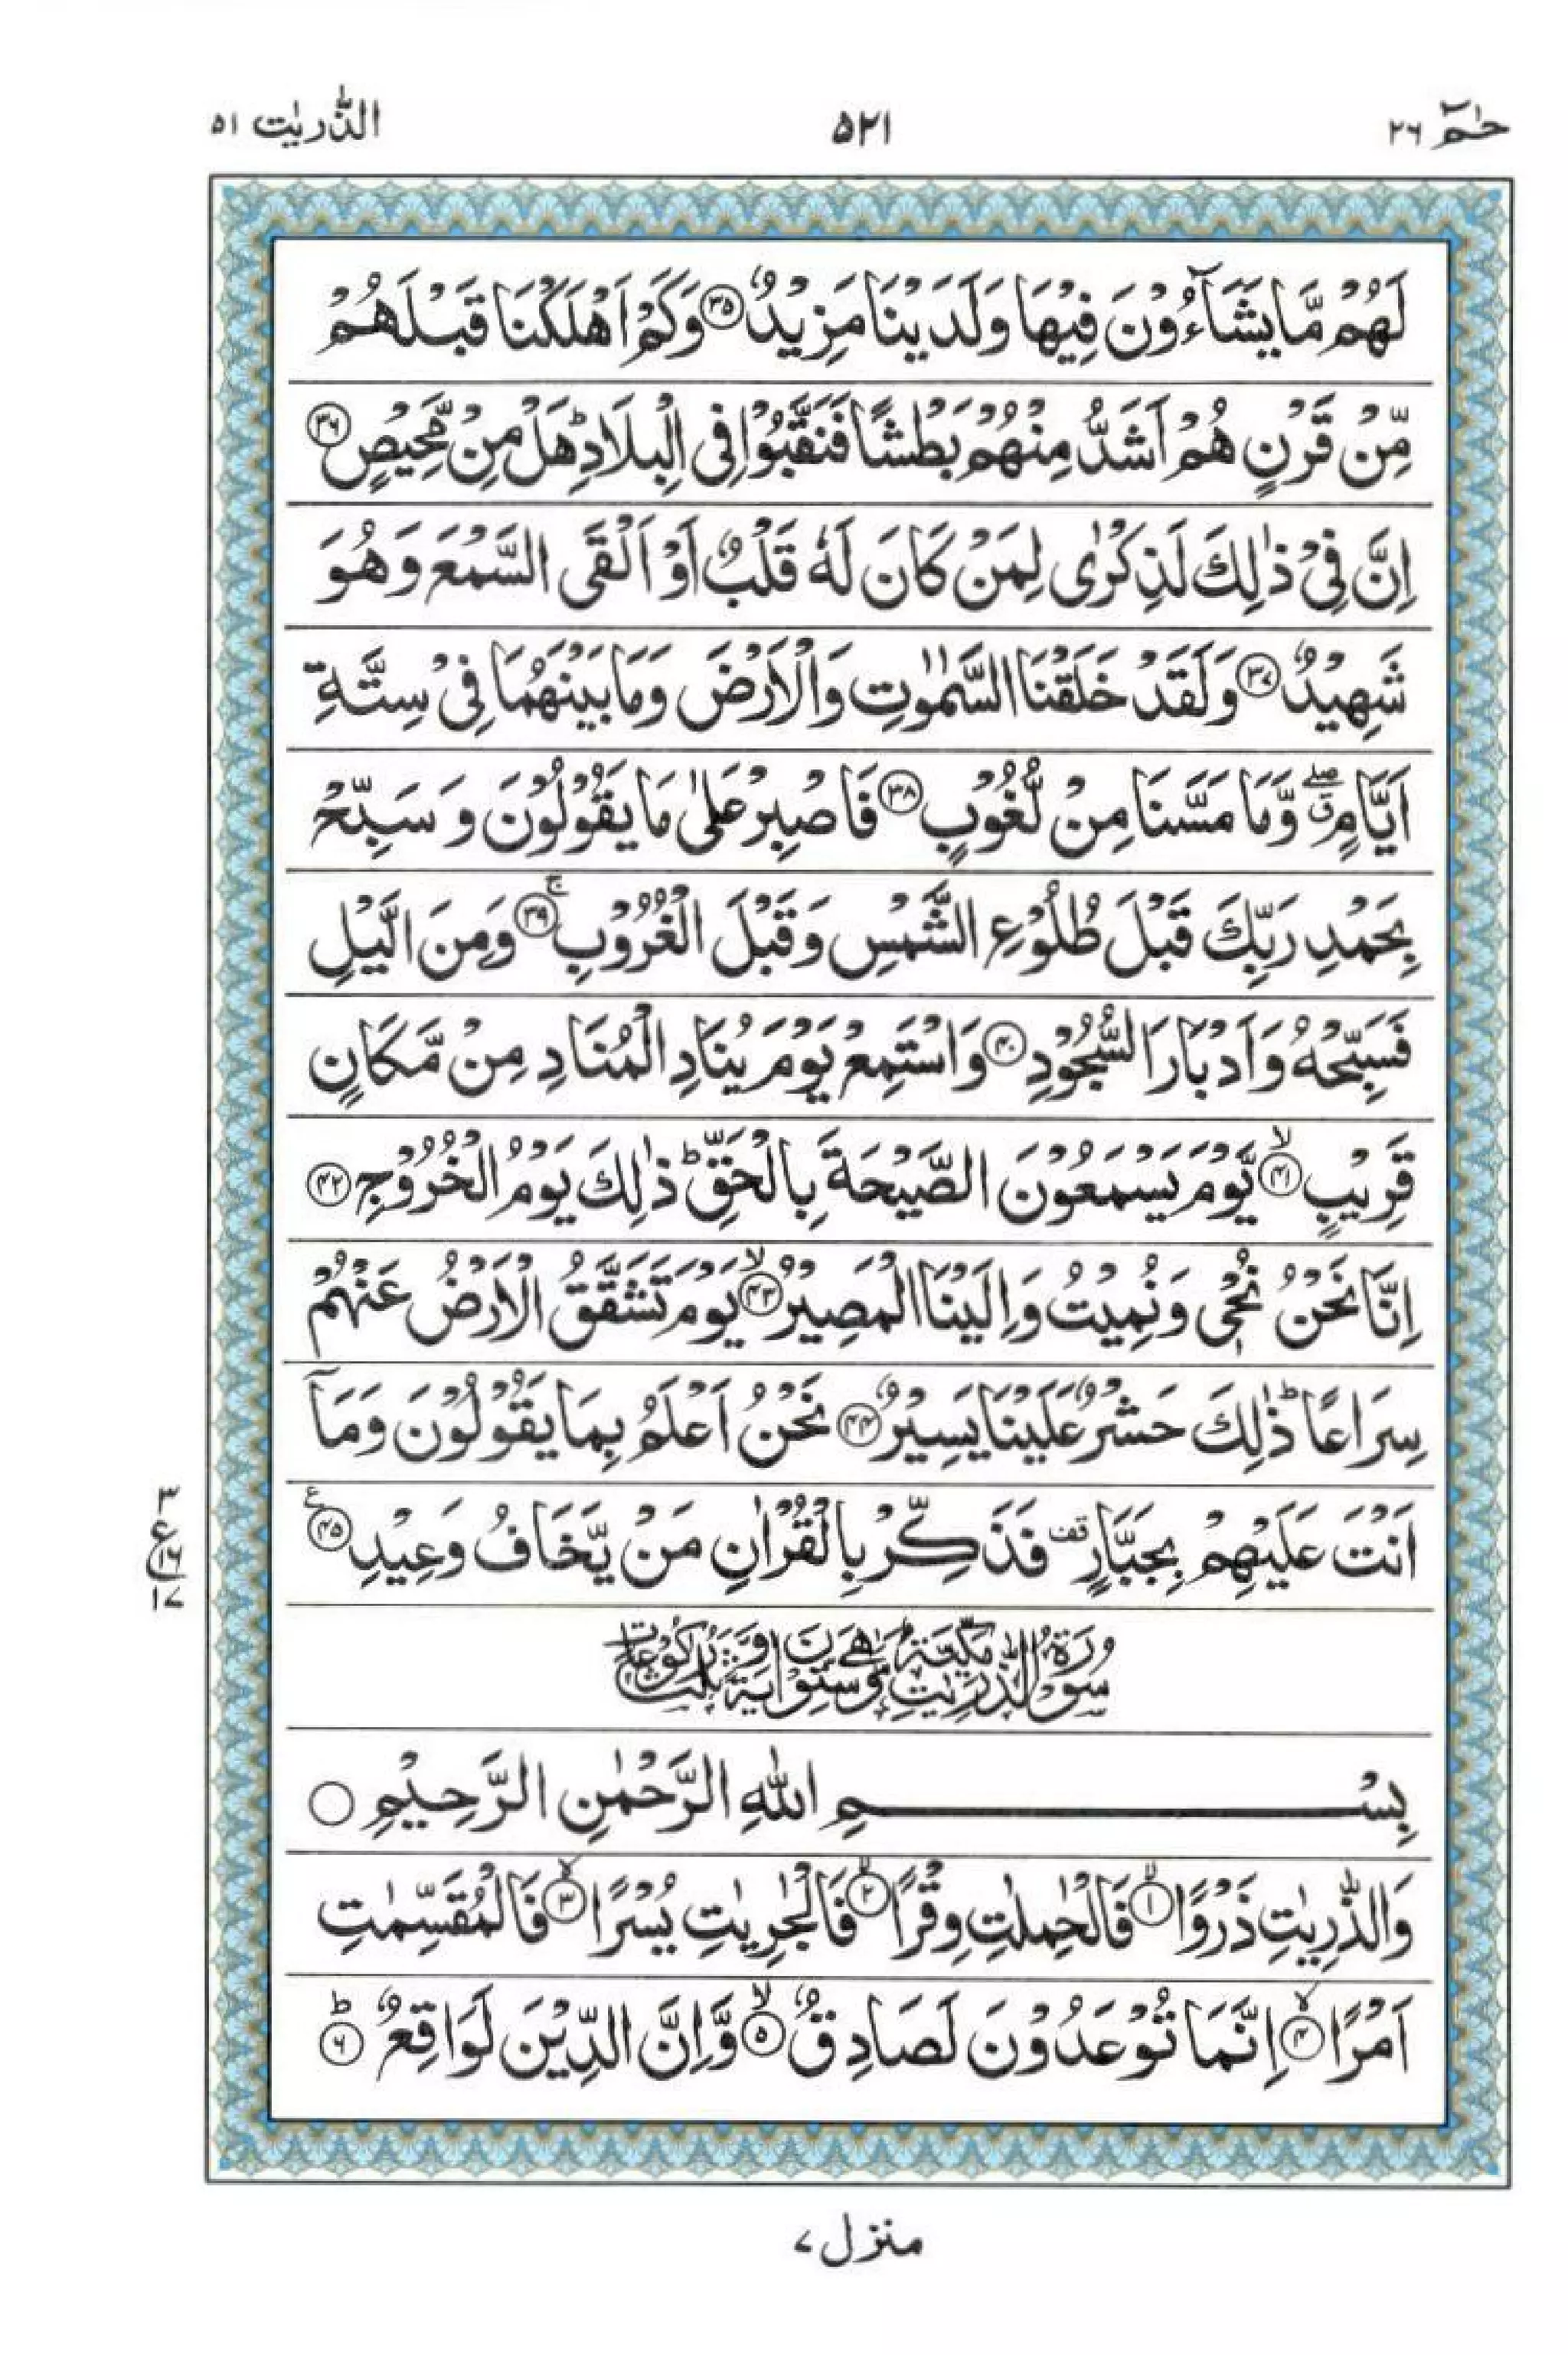 حٰمٓ ۲۶
۵۲۱
الذّٰریٰت ۵۱
لَهُمْ مَّا یَشَآءُوْنَ فِیْهَا وَلَدَیْنَا مَزِیْدٌ ۝۳۵ وَكَمْ اَهْلَكْنَا قَبْلَهُمْ
مِّنْ قَرْنٍ هُمْ اَشَدُّ مِنْهُمْ بَطْشًا فَنَقَّبُوْا فِی الْبِلَادِ ؕ هَلْ مِنْ مَّحِیْصٍ ۝۳۶
اِنَّ فِیْ ذٰلِكَ لَذِكْرٰی لِمَنْ كَانَ لَهٗ قَلْبٌ اَوْ اَلْقَی السَّمْعَ وَهُوَ
شَهِیْدٌ ۝۳۷ وَلَقَدْ خَلَقْنَا السَّمٰوٰتِ وَالْاَرْضَ وَمَا بَیْنَهُمَا فِیْ سِتَّةِ
اَیَّامٍ ۖق وَّمَا مَسَّنَا مِنْ لُّغُوْبٍ ۝۳۸ فَاصْبِرْ عَلٰی مَا یَقُوْلُوْنَ وَسَبِّحْ
بِحَمْدِ رَبِّكَ قَبْلَ طُلُوْعِ الشَّمْسِ وَقَبْلَ الْغُرُوْبِ ۝۳۹ۚ وَمِنَ الَّیْلِ
فَسَبِّحْهُ وَاَدْبَارَ السُّجُوْدِ ۝۴۰ وَاسْتَمِعْ یَوْمَ یُنَادِ الْمُنَادِ مِنْ مَّكَانٍ
قَرِیْبٍ ۝۴۱ۙ یَّوْمَ یَسْمَعُوْنَ الصَّیْحَةَ بِالْحَقِّ ؕ ذٰلِكَ یَوْمُ الْخُرُوْجِ ۝۴۲
اِنَّا نَحْنُ نُحْیٖ وَنُمِیْتُ وَاِلَیْنَا الْمَصِیْرُ ۝۴۳ۙ یَوْمَ تَشَقَّقُ الْاَرْضُ عَنْهُمْ
سِرَاعًا ؕ ذٰلِكَ حَشْرٌ عَلَیْنَا یَسِیْرٌ ۝۴۴ نَحْنُ اَعْلَمُ بِمَا یَقُوْلُوْنَ وَمَاۤ
اَنْتَ عَلَیْهِمْ بِجَبَّارٍ قف فَذَكِّرْ بِالْقُرْاٰنِ مَنْ یَّخَافُ وَعِیْدِ ۝۴۵ ع
۳
ع ۱۶
۱۷
سُوْرَةُ الذّٰرِیٰتِ مَكِّیَّةٌ وَّهِیَ سِتُّوْنَ اٰیَةً وَّثَلٰثُ رُكُوْعَاتٍ
بِسْمِ اللّٰهِ الرَّحْمٰنِ الرَّحِیْمِ ○
وَالذّٰرِیٰتِ ذَرْوًا ۝۱ۙ فَالْحٰمِلٰتِ وِقْرًا ۝۲ۙ فَالْجٰرِیٰتِ یُسْرًا ۝۳ۙ فَالْمُقَسِّمٰتِ
اَمْرًا ۝۴ۙ اِنَّمَا تُوْعَدُوْنَ لَصَادِقٌ ۝۵ۙ وَّاِنَّ الدِّیْنَ لَوَاقِعٌ ۝۶ؕ
منزل ۷